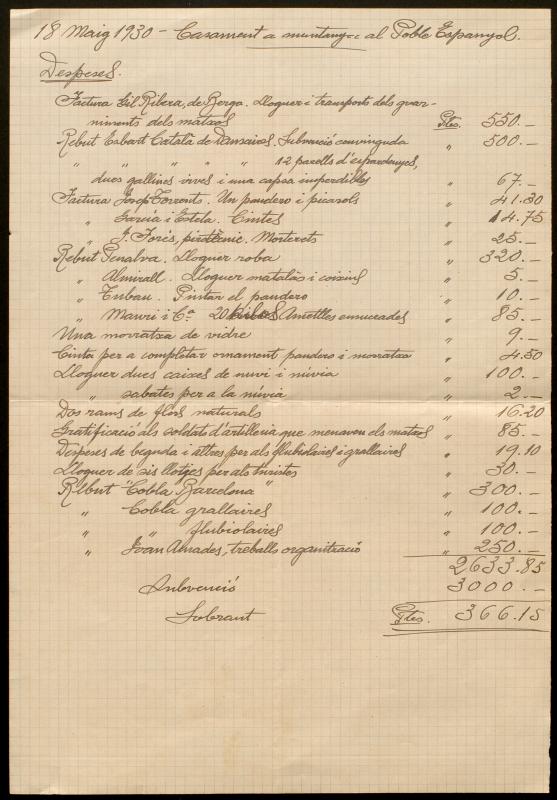 18 Maig 1930 - Casament a muntanya al Poble Espanyol.
Despeses.
Factura Gil Ribera, de Berga. Lloguer i transports dels guar-
niments dels matxos Ptes. 550.-
Rebut Esbart Català de Dansaires. Subvenció convinguda " 500.-
" " " " " 12 parells d'espardenyes,
dues gallines vives i una capsa imperdibles " 67.-
Factura Josep Torrents. Un pandero i picarols " 41.30
" Garcia i Estela. Cintes " 14.75
" J. Forés, pirotècnic. Morterets " 25.-
Rebut Penalva. Lloguer roba " 320.-
" Almirall. Lloguer matalàs i coixins " 5.-
" Tubau. Pintar el pandero " 10.-
" Mauri i Cª 20 kilos Ametlles ensucrades " 85.-
Una morratxa de vidre " 9.-
Cinta per a completar ornament pandero i morratxa " 4.50
Lloguer dues caixes de nuvi i núvia " 100.-
" sabates per a la núvia " 2.-
Dos rams de flors naturals " 16.20
Gratificació als soldats d'artilleria que menaven els matxos " 85.-
Despeses de beguda i altres per als flubiolaires i grallaires " 19.10
Lloguer de sis llotges per als turistes " 30.-
Rebut "Cobla Barcelona" " 300.-
" Cobla grallaires " 100.-
" " flubiolaires " 100.-
" Joan Amades, treballs organització " 250.-
2633.85
Subvenció 3000.-
Sobrant Ptes. 366.15